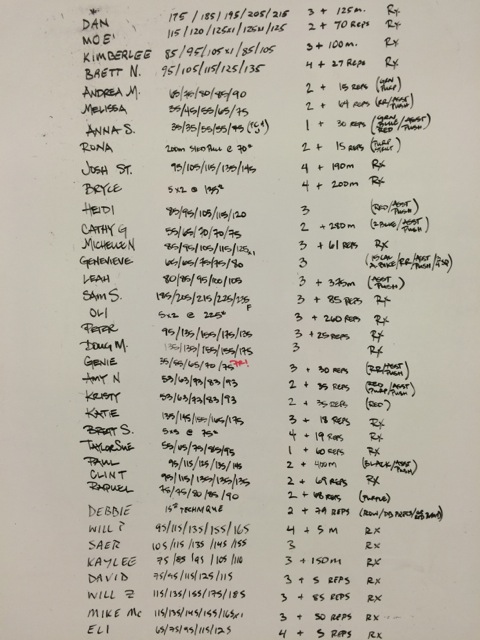 DAN 175 / 185 / 195 / 205 / 215 3 + 125m. Rx
MOE 115 / 120 / 125x1 / 125x1 / 125 2 + 70 REPS Rx
KIMBERLEE 85 / 95 / 105x1 / 85 / 105 3 + 100m. Rx
BRETT N. 95/105/115/125/135 4 + 27 REPS Rx
ANDREA M. 65/75/80/85/90 2 + 15 REPS
MELISSA 35/45/55/65/75 2 + 69 REPS (RR/ASST PUSH)
ANNA S. 35/35/55/55/45 1 + 30 REPS
RONA 200m SLED PULL @ 70# 2 + 15 REPS
JOSH ST. 95/105/115/135/145 4 + 190m Rx
BRYCE 5x2 @ 135# 4 + 200m Rx
HEIDI 85/95/105/115/120 3 (RED/ASST PUSH)
CATHY G 55/65/70/70/75 2 + 280m (2 BIKE/ASST PUSH)
MICHELLE N 85/95/105/115/125x1 3 + 61 REPS Rx
GENEVIEVE 65/65/75/75/80 3
LEAH 80/85/95/100/105 3 + 375m (ASST PUSH)
SAM S. 185/205/215/225/235 F 3 + 85 REPS Rx
OLI 5x2 @ 225# 3 + 260 REPS Rx
PETER 95/135/155/175/185 3 + 25 REPS Rx
DOUG M. 135/135/155/155/175 3 Rx
GENIE 35/55/65/70/75 PR! 3 + 30 REPS (RR/ASST PUSH)
AMY N 53/63/73/83/93 2 + 35 REPS
KRISTY 53/63/73/83/93 2 + 35 REPS (RED)
KATIE 135/145/155/165/175 3 + 18 REPS Rx
BRETT S. 5x3 @ 75# 4 + 19 REPS Rx
TAYLOR SUE 55/65/75/85/95 1 + 60 REPS Rx
PAUL 95/115/125/135/145 2 + 400m (BLACK/ASST PUSH)
CLINT 95/115/135/135/135 2 + 69 REPS Rx
RAQUEL 75/75/80/85/90 2 + 68 REPS (PURPLE)
DEBBIE 15# TECHNIQUE 2 + 79 REPS
WILL P 95/115/135/155/165 4 + 5 M Rx
SAER 105/115/135/145/155 3 Rx
KAYLEE 75/85/95/105/110 3 + 150m Rx
DAVID 75/95/115/125/115 3 + 5 REPS Rx
WILL Z 115/135/155/175/185 3 + 85 REPS Rx
MIKE Mc 115/135/145/155/165x1 3 + 50 REPS Rx
ELI 65/75/95/115/125 4 + 5 REPS Rx